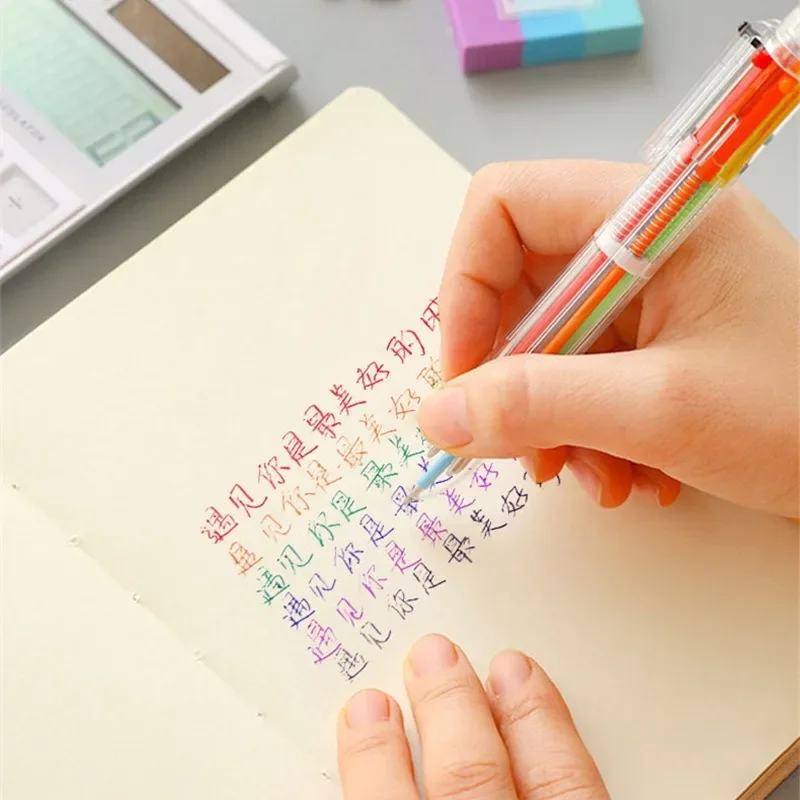 遇见你是最美好的
遇见你是最美好
遇见你是最美
遇见你是最
遇见你是最美好
遇见你是最美好